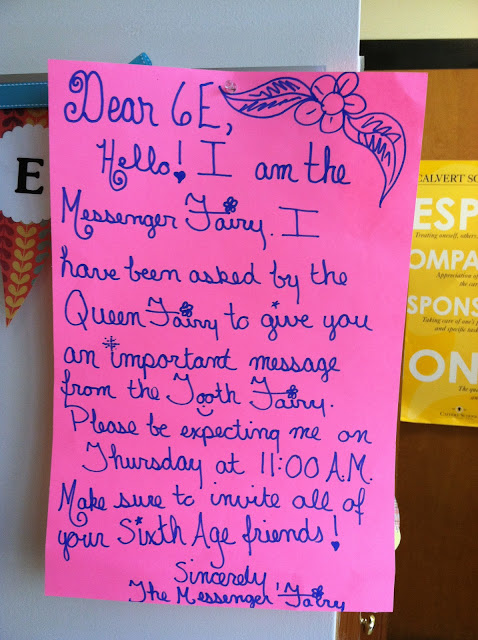 Dear 6E,
Hello! I am the
Messenger Fairy. I
have been asked by the
Queen Fairy to give you
an important message
from the Tooth Fairy.
Please be expecting me on
Thursday at 11:00 A.M.
Make sure to invite all of
your Sixth Age friends!
Sincerely
The Messenger Fairy
E
CALVERT SC
ESP
Treating oneself, others,
OMPA
Appreciation of
the car
SPONS
Taking care of one's
and specific task
ON
The qua
and